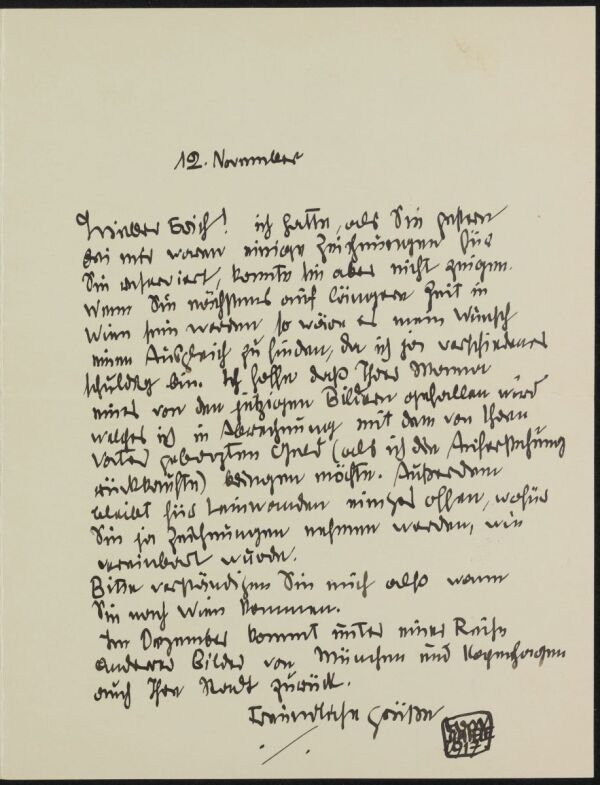 12. November
Lieber Erich! ich hatte, als Sie gestern
bei mir waren einige Zeichnungen für
Sie reserviert, konnte sie aber nicht zeigen.
Wenn Sie nächstens auf längere Zeit in
Wien sein werden so wäre es mein Wunsch
einen Ausgleich zu finden, da ich ja verschiedenes
schuldig bin. Ich hoffe daß Ihrer Mama
eines von den jetzigen Bildern gefallen wird
welches ich in Abrechnung mit dem von Ihrem
Vater geborgten Geld (als ich die Auferstehung
rückkaufte) bringen möchte. Außerdem
bleibt für Leinwanden einiges offen, wofür
Sie ja Zeichnungen nehmen werden, wie
vereinbart wurde.
Bitte verständigen Sie mich also wann
Sie nach Wien kommen.
Im Dezember kommt unter einer Reihe
anderer Bilder von München und Kopenhagen
auch Ihre Stadt zurück.
Freundliche Grüße
1917.